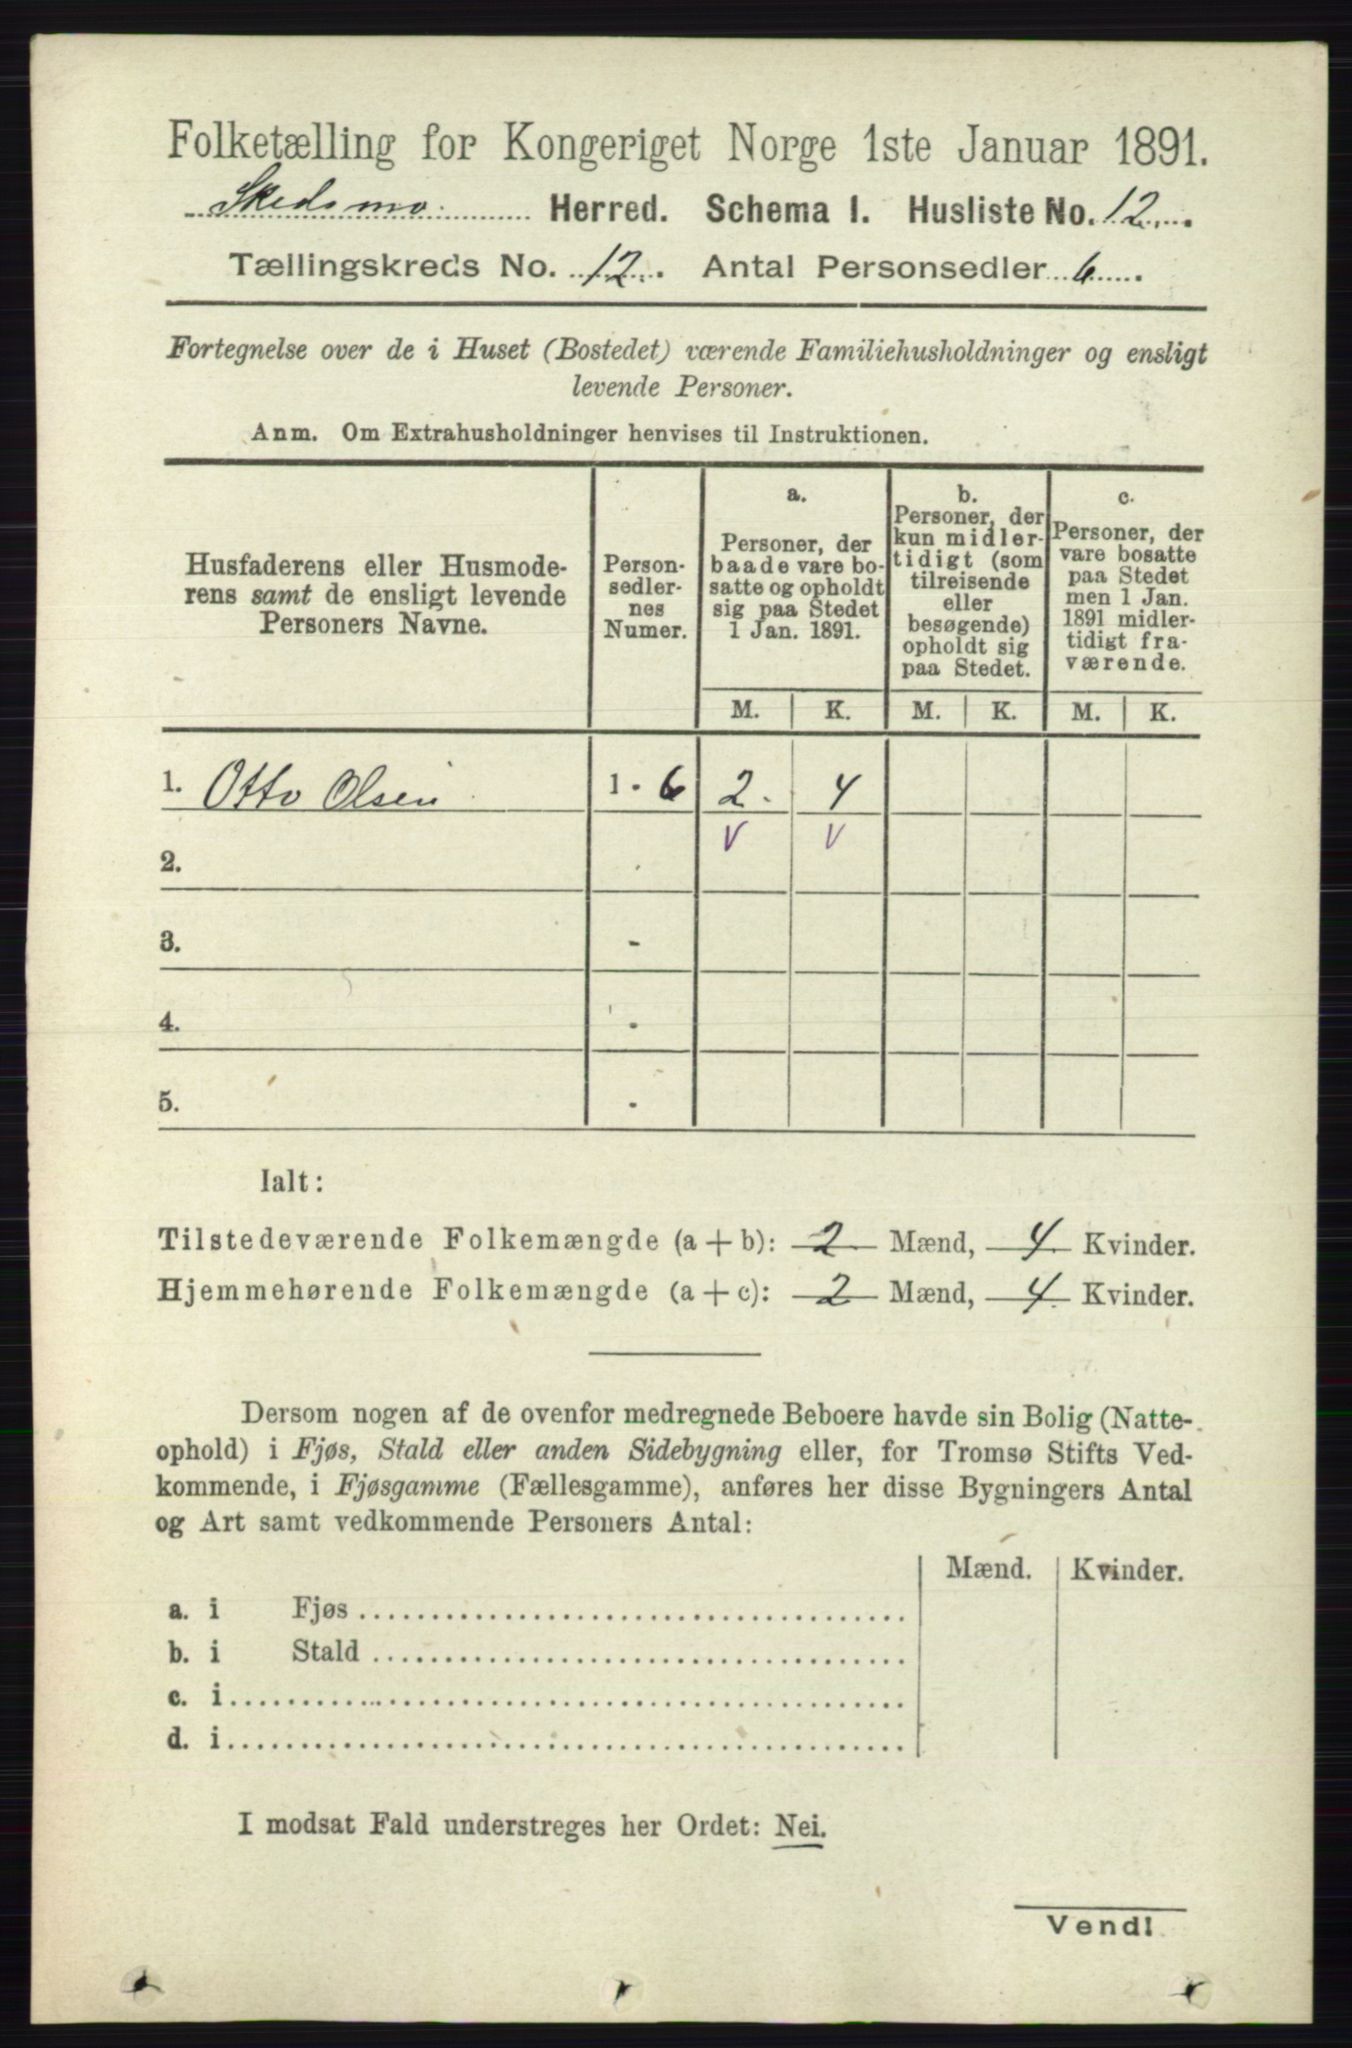 Folketælling for Kongeriget Norge 1ste Januar 1891.
Skedsmo Herred. Schema I. Husliste No. 12.
Tællingskreds No. 12. Antal Personsedler 6
Fortegnelse over de i Huset (Bostedet) værende Familiehusholdninger og ensligt
levende Personer.
Anm. Om Extrahusholdninger henvises til Instruktionen.
Husfaderens eller Husmode-
rens samt de ensligt levende
Personers Navne.
Person-
sedler-
nes
Numer.
a.
Personer, der
baade vare bo-
satte og opholdt
sig paa Stedet
1 Jan. 1891.
b.
Personer, der
kun midler-
tidigt (som
tilreisende
eller
besøgende)
opholdt sig
paa Stedet.
c.
Personer, der
vare bosatte
paa Stedet
men 1 Jan.
1891 midler-
tidigt fra-
værende.
M. K. M. K. M. K.
1. Otto Olsen 1 - 6 2. 4
V V
2.
3. -
4. -
5. -
Ialt:
Tilstedeværende Folkemængde (a + b): 2 Mænd, 4 Kvinder.
Hjemmehørende Folkemængde (a + c): 2 Mænd, 4 Kvinder.
Dersom nogen af de ovenfor medregnede Beboere havde sin Bolig (Natte-
ophold) i Fjøs, Stald eller anden Sidebygning eller, for Tromsø Stifts Ved-
kommende, i Fjøsgamme (Fællesgamme), anføres her disse Bygningers Antal
og Art samt vedkommende Personers Antal:
Mænd. Kvinder.
a. i Fjøs
b. i Stald
c. i
d. i
I modsat Fald understreges her Ordet: Nei.
Vend!